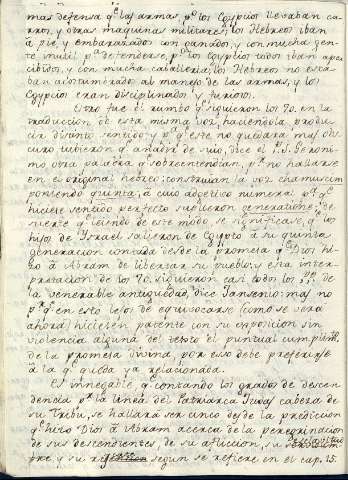 mas defensa q.e las armas, p.r q.e los Egypcios llevaban ca-
rros, y otras maquinas militares; los Hebreos iban
à pie, y embarazados con ganados, y con mucha gen-
te inutil p.a defenderse, p.r q.e los Egypcios todos iban aper-
cibidos, y con mucha caballeria; los Hebreos no esta-
ban acostumbrados al manejo de las armas, y los
Egypcios eran disciplinados, y furiosos.
Otro fue el rumbo q.e siguieron los 70. en la
traduccion de esta misma voz, haciendola produ-
cir distinto sentido y p.a q.e este no quedara mas obs-
curo tubieron q.e añadir de suio, dice el P. S. Geroni-
mo otra palabra q.e sobreentendian, p.r no hallarse
en el original hebreo: construian la voz chamuscim
poniendo quinta; à cuio adjetivo numeral p.a q.e
hiciese sentido perfecto suplieron generatione: de
suerte q.e leiendo de este modo, se significase, q.e los
hijos de Israel salieron de Egypto à su quinta
generacion contada desde la promesa q.e Dios hi-
zo à Abram de libertar su pueblo: y esta inter-
pretacion de los 70. siguieron casi todos los P.P. de
la venerable antiguedad, dice Jansenio: mas no
p.r q.e en esto lejos de equivocarse (como se verà
ahora) hiciesen patente con su exposicion sin
violencia alguna del texto el puntual cumplim.to
de la promesa divina, por eso debe preferirse
à la q.e queda ya relacionada.
Es innegable q.e contando los grados de descen-
dencia p.r la linea del Patriarca Judas cabeza de
su Tribu, se hallarà ser cinco desde la prediccion
q.e hizo Dios à Abram acerca de la peregrinacion
de sus descendientes, de su afliccion, su
y su segun se refiere en el cap. 15.